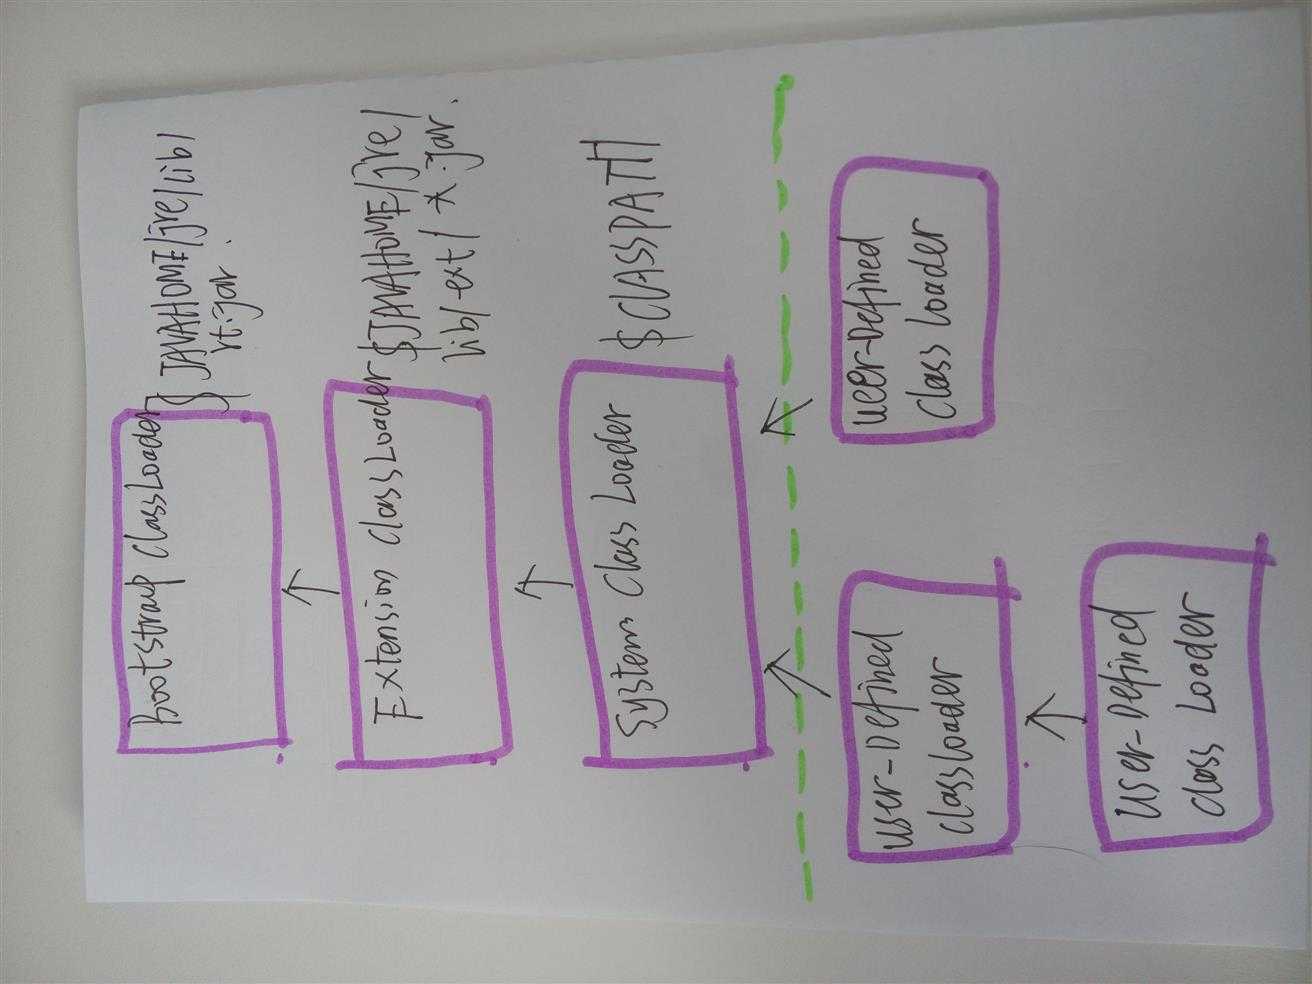 Bootstrap ClassLoader
$JAVAHOME/jre/lib/
rt.jar.
Extension ClassLoader
$JAVAHOME/jre/
lib/ext/*.jar.
System Class Loader
$CLASSPATH
user-Defined
ClassLoader
user-Defined
Class Loader
User-Defined
Class Loader